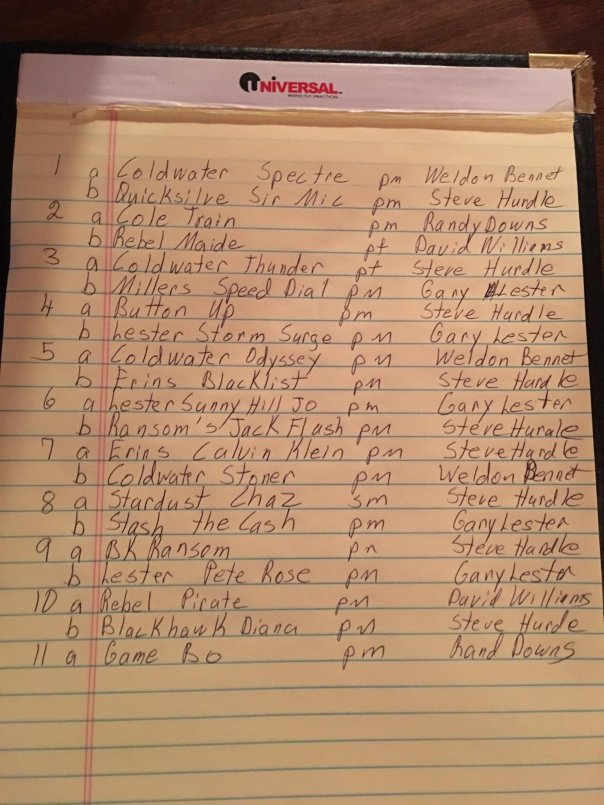 UNIVERSAL
PERFECTLY PRACTICAL
1 a Coldwater Spectre pm Weldon Bennet
b Quicksilve Sir Mic pm Steve Hurdle
2 a Cole Train pm Randy Downs
b Rebel Maide pf David Williams
3 a Coldwater Thunder pf Steve Hurdle
b Millers Speed Dial pm Gary Lester
4 a Button Up pm Steve Hurdle
b Lester Storm Surge pm Gary Lester
5 a Coldwater Odyssey pm Weldon Bennet
b Erins Blacklist pm Steve Hurdle
6 a Lester Sunny Hill Jo pm Gary Lester
b Ransom's Jack Flash pm Steve Hurdle
7 a Erins Calvin Klein pm Steve Hurdle
b Coldwater Stoner pm Weldon Bennet
8 a Stardust Chaz sm Steve Hurdle
b Slash the Cash pm Gary Lester
9 a BK Ransom pm Steve Hurdle
b Lester Pete Rose pm Gary Lester
10 a Rebel Pirate pm David Williams
b Blackhawk Diana pm Steve Hurdle
11 a Game Bo pm Rand Downs